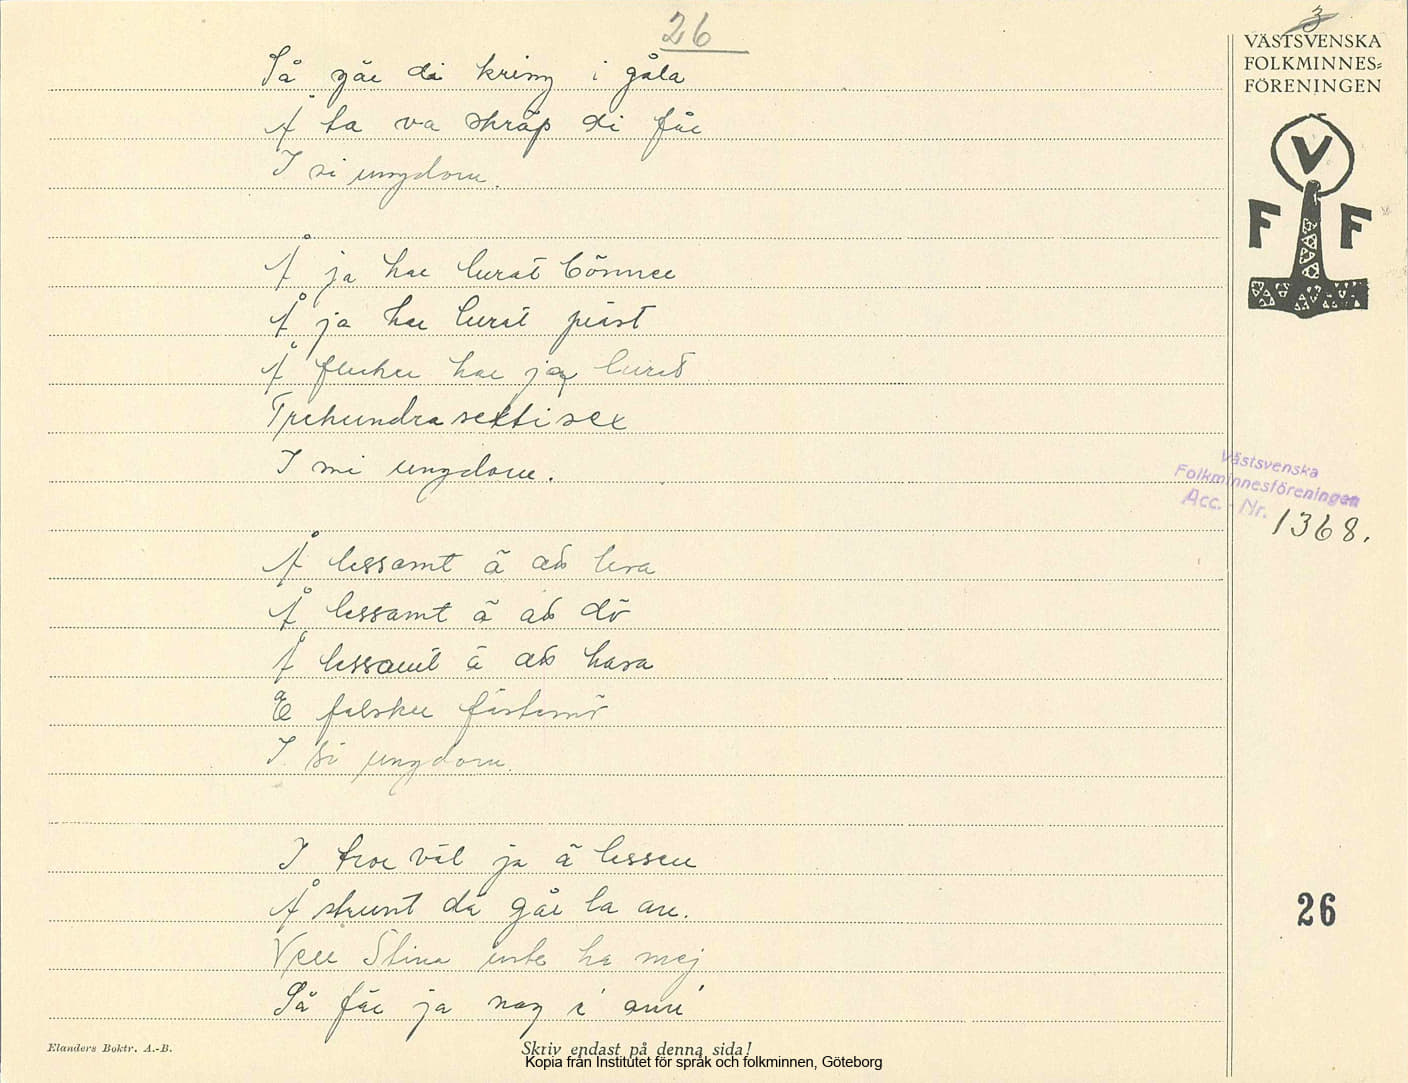 26
3
VÄSTSVENSKA
FOLKMINNES=
FÖRENINGEN
V
F F
Så går di kring i gåla
Å ta va skräp di får
I si ungdom.
Å ja har lurat bönner
Å ja har lurat präst
Å flecker har jag lurat
Trehundrasektisex
I mi ungdom.
Västsvenska
Folkminnesföreningen
Acc. - Nr. 1368.
Å lessamt ä att leva
Å lessamt ä att dö
Å lessamt ä att hava
E falsker fästemö
I si ungdom.
I tror väl ja ä lessen
Å skunt dä går la an.
Vell Stina inte ha mej
Så får ja nog i ann
26
Elanders Boktr. A.-B.
Skriv endast på denna sida!
Kopia från Institutet för språk och folkminnen, Göteborg